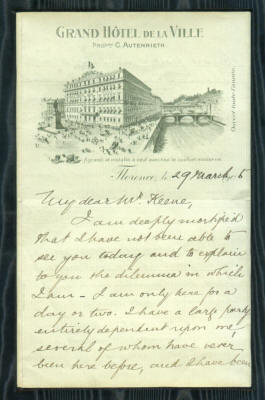 GRAND HÔTEL DE LA VILLE
PROPRE C. AUTENRIETH
Ouvert toute l'année.
Agrandi et installé à neuf avec tout le confort moderne
Florence, le 29 March 5
My dear Mr. Keene,
I am deeply mortified
that I have not been able to
see you today and to explain
to you the dilemma in which
I am - I am only here for a
day or two. I have a large party
entirely dependent upon me
several of whom have never
been here before, and I have been